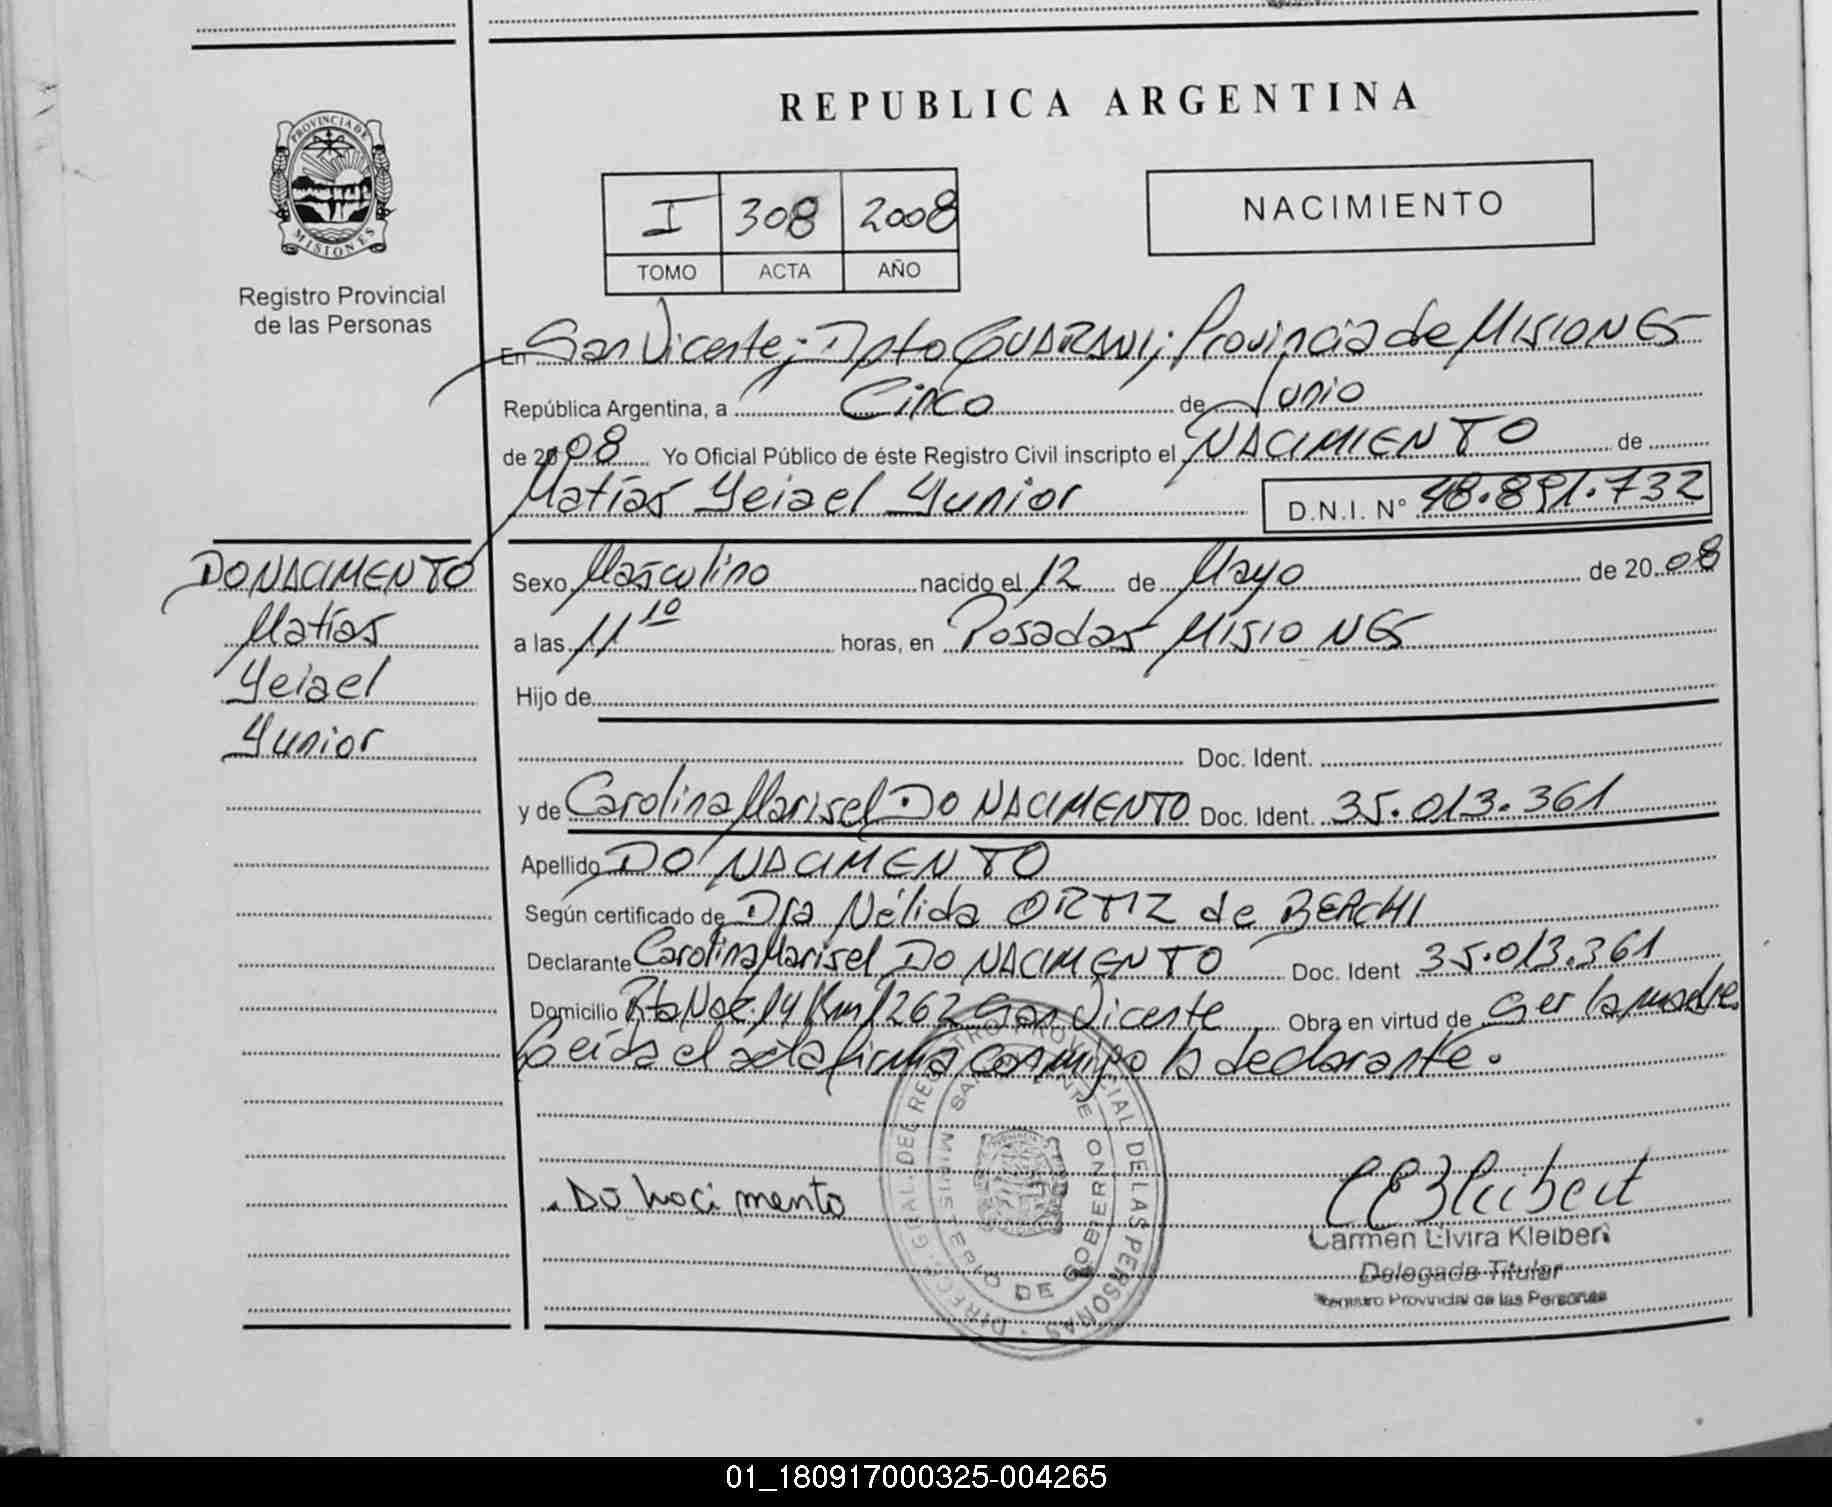 REPUBLICA ARGENTINA
PROVINCIA DE
MISIONES
Registro Provincial
de las Personas
I 308 2008
TOMO ACTA AÑO
NACIMIENTO
En San Vicente; Dpto GUARANI; Provincia de MISIONES
República Argentina, a Cinco de Junio
de 2008 Yo Oficial Público de éste Registro Civil inscripto el NACIMIENTO de
Matías Yeiael Yunior D.N.I. N° 48.891.732
DO NACIMENTO
Matías
Yeiael
Yunior
Sexo Masculino nacido el 12 de Mayo de 2008
a las 11 10 horas, en Posadas MISIONES
Hijo de
Doc. Ident.
y de Carolina Marisel DO NACIMENTO Doc. Ident. 35.013.361
Apellido DO NACIMENTO
Según certificado de Dra Nélida ORTIZ de BERCHI
Declarante Carolina Marisel DO NACIMENTO Doc. Ident 35.013.361
Domicilio Rta Nac. 14 Km 1262 San Vicente Obra en virtud de ser la madre
Leída el acta firma conmigo la declarante.
DIRECC. GRAL. DEL REGISTRO PROVINCIAL DE LAS PERSONAS
MINISTERIO DE GOBIERNO
SAN VICENTE
Do naci mento
Carmen Elvira Kleibert
Delegada Titular
Registro Provincial de las Personas
01_180917000325-004265